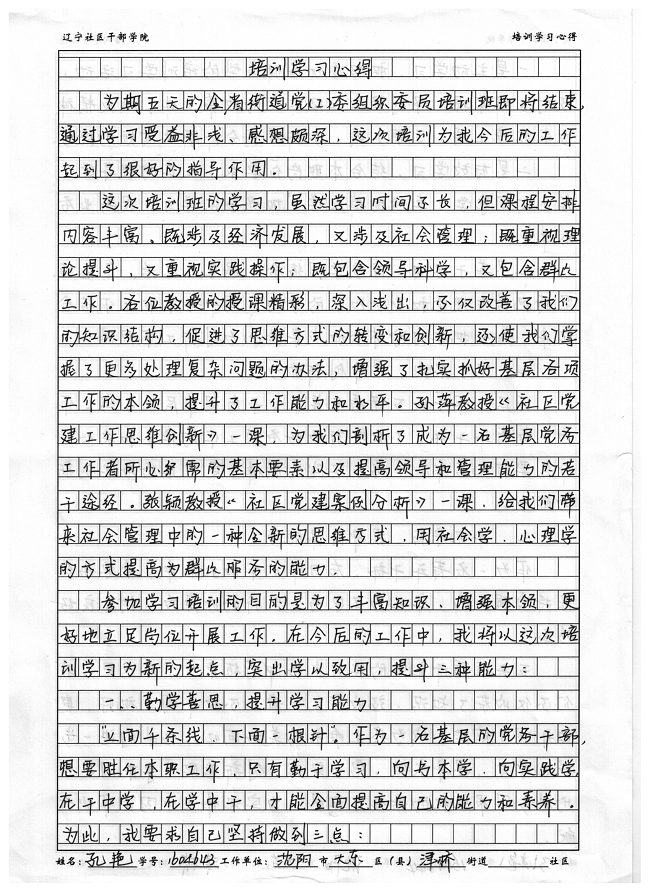 辽宁社区干部学院 培训学习心得
培训学习心得
为期五天的全省街道党(工)委组织委员培训班即将结束,
通过学习受益非浅、感想颇深,这次培训为我今后的工作
起到了很好的指导作用。
这次培训班的学习,虽然学习时间不长,但课程安排
内容丰富、既涉及经济发展,又涉及社会管理;既重视理
论提升、又重视实践操作;既包含领导科学,又包含群众
工作。各位教授的授课精彩,深入浅出,不仅改善了我们
的知识结构,促进了思维方式的转变和创新,还使我们掌
握了更多处理复杂问题的办法,增强了扎实抓好基层各项
工作的本领,提升了工作能力和水平。孙萍教授《社区党
建工作思维创新》一课,为我们剖析了成为一名基层党务
工作者所必须需的基本要素以及提高领导和管理能力的若
干途经。张颖教授《社区党建案例分析》一课,给我们带
来社会管理中的一种全新的思维方式,用社会学、心理学
的方式提高为群众服务的能力.
参加学习培训的目的是为了丰富知识、增强本领,更
好地立足岗位开展工作。在今后的工作中,我将以这次培
训学习为新的起点,突出学以致用,提升三种能力:
一、勤学善思,提升学习能力
"上面千条线,下面一根针"。作为一名基层的党务干部,
想要胜任本职工作,只有勤于学习,向书本学,向实践学
在干中学,在学中干,才能全面提高自己的能力和素养。
为此,我要求自己坚持做到三点:
姓名:孔艳 学号:1604643 工作单位:沈阳 市 大东 区(县) 津桥 街道 社区